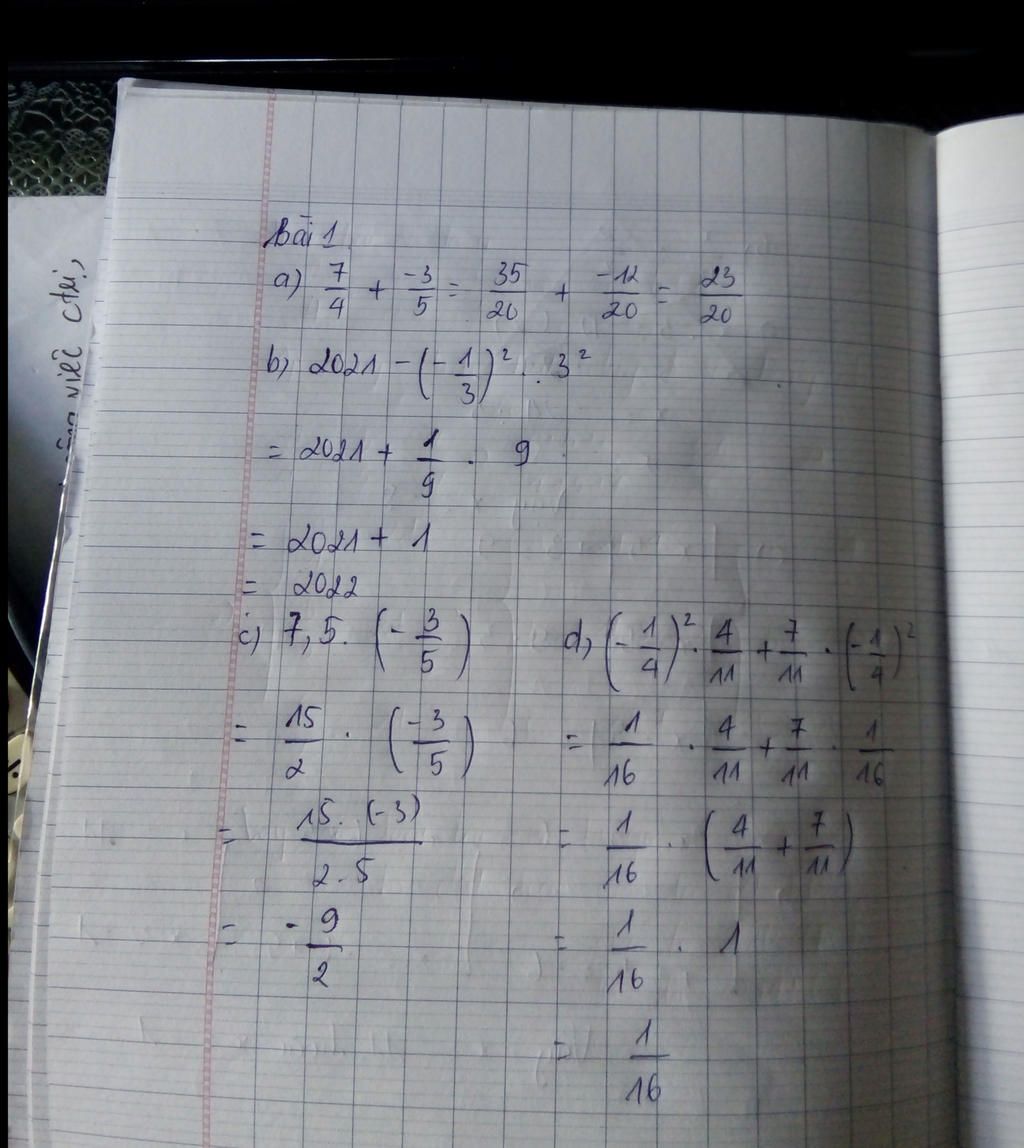 Bài 1
a) 7/4 + -3/5 = 35/20 + -12/20 = 23/20
b) 2021 - (-1/3)² . 3²
= 2021 + 1/9 . 9
= 2021 + 1
= 2022
c) 7,5 . (-3/5)
= 15/2 . (-3/5)
= 15 . (-3)/2 . 5
= -9/2
d) (-1/4)² . 4/11 + 7/11 . (-1/4)²
= 1/16 . 4/11 + 7/11 . 1/16
= 1/16 . (4/11 + 7/11)
= 1/16 . 1
= 1/16
việc